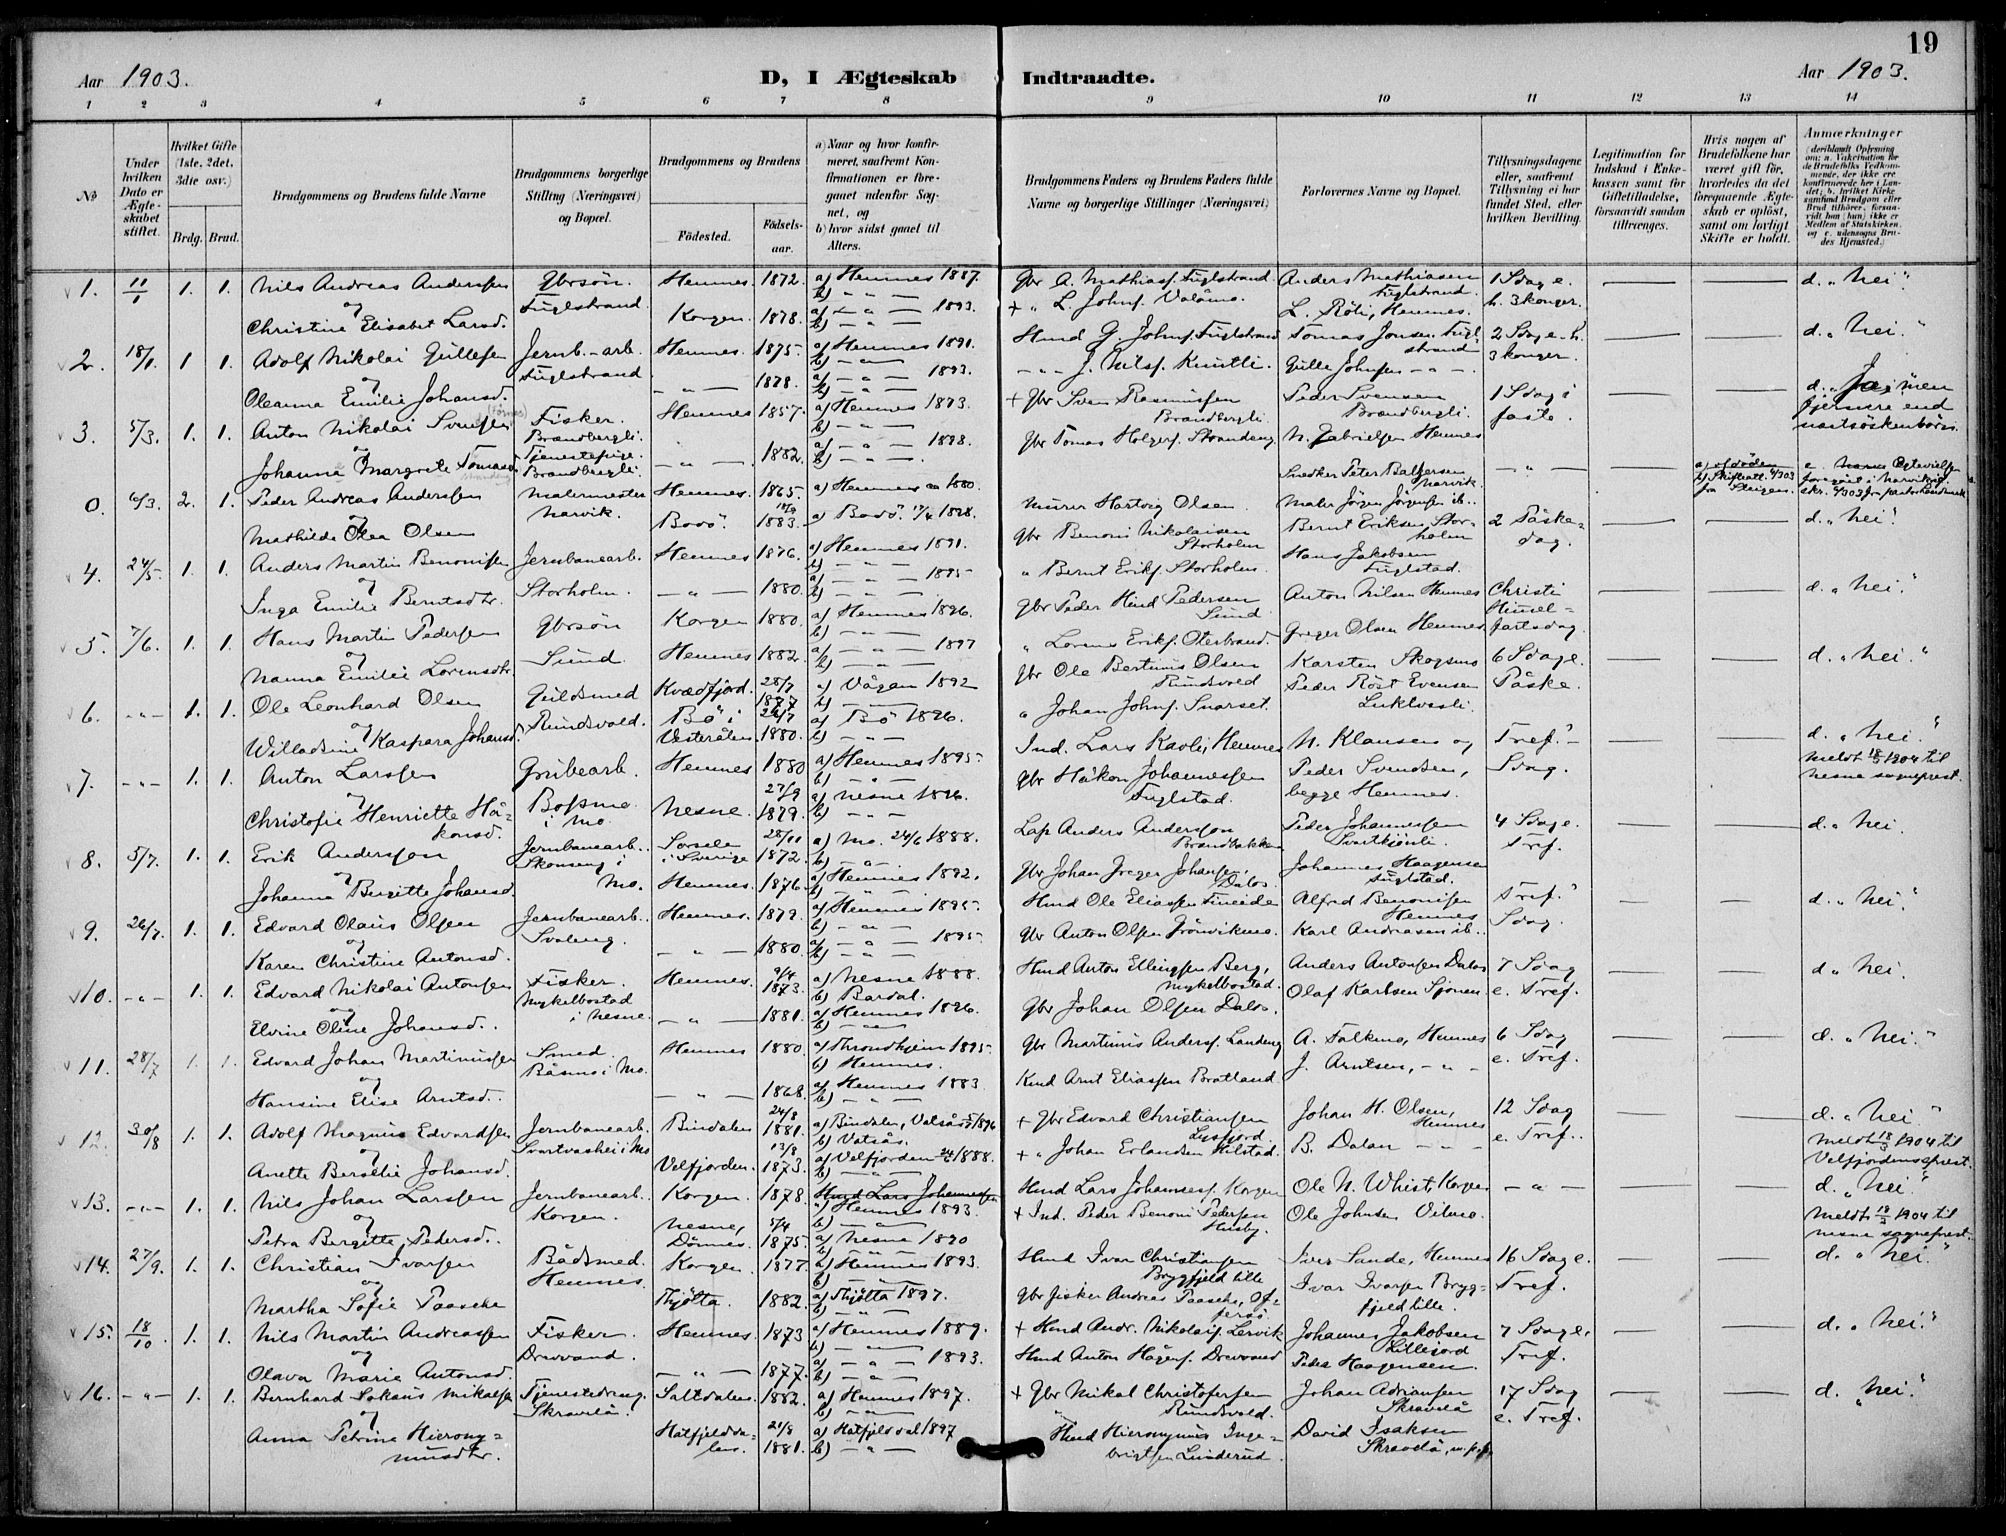 19
Aar 1903.
D, I Ægteskab Indtraadte.
Aar 1903.
1 2 3 4 5 6 7 8 9 10 11 12 13 14
№
Under hvilken Dato er Ægteskabet stiftet.
Hvilket Gifte (1ste, 2det, 3die osv.)
Brdg. Brud.
Brudgommens og Brudens fulde Navne
Brudgommens borgerlige Stilling (Næringsvei) og Bopæl.
Brudgommens og Brudens
Fødested. Fødselsaar.
a) Naar og hvor konfirmeret, saafremt Konfirmationen er foregaaet udenfor Sognet, og
b) hvor sidst gaaet til Alters.
Brudgommens Faders og Brudens Faders fulde Navne og borgerlige Stillinger (Næringsvei)
Forlovernes Navne og Bopæl.
Tillysningsdagene eller, saafremt Tillysning ei har fundet Sted, efter hvilken Bevilling.
Legitimation for Indskud i Enkekassen samt for Giftetilladelse, forsaavidt saadan tiltrænges.
Hvis nogen af Brudefolkene har været gift før, hvorledes da det foregaaende Ægteskab er opløst, samt om lovligt Skifte er holdt.
Anmærkninger (deriblandt Oplysning om: a. Vakcination for de Brudefolks Vedkommende, der ikke ere konfirmerede her i Landet; b. hvilket Kirkesamfund Brudgom eller Brud tilhører, forsaavidt han (hun) ikke er Medlem af Statskirken, og c. udensogns Brudes Hjemsted.)
1. 11/1 1. 1. Nils Andreas Anderssen Gbrsøn. Hemnes 1872. a) Hemnes 1887. Gbr A. Mathiass. Fuglstrand Anders Mathiasen Fuglstrand. 1 Sdag e. d. "Nei."
og Fuglstrand. b) — " —
Christine Elisabet Larsd. Korgen. 1878. a) — " — 1893. + " L. Johns. Valåmo. L. Röli, Hemnes. h. 3 konger.
2. 18/1. 1 1. Adolf Nikolai Gullesen Jernb.-arb. Hemnes. 1875. a) Hemnes 1891. Hmd G. Johns. Fuglstrand Tomas Jonsen Fuglstrand 2 Sdag e. h. 3 konger. d. "Nei."
og Fuglstrand
Oleanna Emilie Johansd. — " — 1878. a) — " — 1893. — " — J. Nilss. Kunstli. Gulle Johnsen — " —
3. 5/3. 1. 1. Anton Nikolai Svensen Fisker. Brandbergli. Hemnes 1857. a) Hemnes 1873. + Gbr Sven Rasmussen Brandbergli Peder Svensen Brandbergli. 1 Sdag i faste. d. "Ja," men fjernere end næstsöskenbörn.
og Tjenestepige.
Johanna Margrete Tomasd. Brandbergli. — " — 1882. a) — " — 1898. Gbr Tomas Holgers. Strandeng N. Gabrielsen Hemnes
0. 6/3. 2. 1. Peder Andreas Anderssen Malermester Narvik. Hemnes. 1865. a) Hemnes 1880. Snedker Peter Baltzersen Narvik. — " —
og
Mathilde Olea Olsen Bodö. 1883. a) Bodö. 17/4 1898. Murer Hartvig Olsen. Maler Jörgen Jörgensen ib.
4. 24/5. 1. 1. Anders Martin Benonisen Jernbanearb. Hemnes 1876. a) Hemnes 1891. Gbr Benoni Nikolaisen Storholm Bernt Eriksen, Storholm 2 Påskedag. d. "Nei."
og Storholm.
Inga Emilie Berntsdtr. — " — 1880. a) — " — 1895. " Bernt Eriks. Storholm. Hans Jakobsen Fuglstad.
5. 7/6. 1. 1. Hans Martin Pedersen Gbrsön Korgen 1880. a) Hemnes 1896. Gbr Peder Hind Pedersen Sund Anton Nilsen Hemnes Christi Himmelfartsdag. d. "Nei."
og Sund
Nanna Emilie Lorensdtr. Hemnes 1882. a) — " — 1897 " Lorens Eriks. Oterbrand. Greger Olsen Hemnes
6. — " — 1. 1. Ole Leonhard Olsen Guldsmed Kvædfjord. 28/7 1877 a) Vågan 1892 Gbr Ole Bertinus Olsen Rundsvold Karsten Skogsmo 6 Sdag e. Påske. d. "Nei."
og Rundsvold.
Willadsine Kaspara Johansd. Bö i Vesterålen. 1880. a) Bö 1896. " Johan Johns. Snarset. Peder Röst Evensen
7. — " — 1. 1. Anton Larssen Grubearb. Hemnes 1880 a) Hemnes 1895. Ind. Lars Kavli, Hemnes N. Klausen og Tref. Sdag. d. "Nei."
og Bossmo i Mo. Meldt 18/3 1904 til Nesna sogneprest.
Christofie Henriette Håkonsd. Nesne. 27/9 1879. a) Nesne 1896. Gbr Håkon Johannessen Fuglstad. Peder Svendsen, begge Hemnes.
8. 5/7. 1. 1. Erik Andersson Jernbanearb. Skonseng i Mo. Sorsele i Sverige 28/11 1872. a) Mo. 24/6 1888. Lap Anders Andersson Brandbakken Peder Johannessen Svartkjönli. 4 Sdag e. Tref. d. "Nei.
og
Johanna Birgitte Johansd. Hemnes. 1876. a) Hemnes 1892. Gbr Johan Greger Johans. Dalos. Johannes Haagensen Fuglstad.
9. 26/7. 1. 1. Edvard Olaus Olsen Jernbanearb. Svaleng. Hemnes. 1879. a) Hemnes 1895. Hmd Ole Eliassen Fineide Alfred Benonisen Hemnes Tref. Sdag. d. "Nei."
og
Karen Christine Antonsd. — " — 1880. a) — " — 1895. Gbr Anton Olsen Grönvikmo. Karl Andreasen ib.
10. — " — 1. 1. Edvard Nikolai Antonsen Fisker. Hemnes. 9/4 1873. a) Nesne 1888. Hmd Anton Ellingsen Berg, Mykelbostad. Anders Antonsen Dalos 7 Sdag e. Tref. d " Nei.
og Mykelbostad i Nesne. b) Bardal.
Elvine Oline Johansd. — " — 1881. a) Hemnes 1896. Gbr Johan Olsen Dalos. Olaf Karlsen Sjonen
11. 28/7 1. 1. Edvard Johan Martinussen Smed. Båsmo i Mo. Hemnes 1880 a) Throndhjem 1895. Gbr Martinus Anders. Landeng A. Falkmo, Hemnes 6 Sdag e. Tref. d. "Nei."
og b) Hemnes.
Hansine Elise Arntsd. — " — 1868. a) Hemnes 1883. Kmd Arnt Eliassen Bratland. J. Arntsen, — " —
12. 30/8 1. 1. Adolf Magnus Edvardsen Jernbanearb. Svartvashei i Mo Bindalen 24/8 1881. a) Bindalen, Vatsås 1896 + Gbr Edvard Christiansen Lysfjord. Johan H. Olsen, Hemnes 12 Sdag e. Tref. d. "Nei"
og b) Vatsås. Meldt 18/3 1904 til Velfjordens sprest.
Anette Berselie Johansd. Velfjorden. 13/8 1873. a) Velfjorden 1888. + " Johan Erlandsen Hilstad. B. Dalan — " —
13. — " — 1. 1. Nils Johan Larssen Jernbanearb. Korgen. Korgen. 1878. Hmd Lars Johannessen a) Hemnes 1893. Hmd Lars Johanness. Korgen Ole N. Whist, Korgen — " — d. "Nei."
og Meldt 18/3 1904 til Nesne sogneprest.
Petra Bergitte Pedersd. Nesne, Dönnes. 5/4 1875. a) Nesne 1890 + Ind. Peder Benoni Pedersen Husby. Ole Johnsen Vilmo.
14. 27/9. 1. 1. Christian Ivarsen Bådsmed. Hemnes. Korgen 1877. a) Hemnes 1893. Hmd Ivar Christiansen Brygfjeld lille Iver Sande, Hemnes 16 Sdag e. Tref. d. "Nei."
og
Martha Sofie Paasche Thjötta. 1882. a) Thjötta 1897. Gbr fisker Andreas Paasche, Offersö. Ivar Ivarsen Brygfjeld lille.
15. 18/10 1. 1. Nils Martin Andreassen Fisker. Drevvand. Hemnes 1873 a) Hemnes 1889. + Hmd Andr. Nikolais. Lervik Johannes Jakobsen Lillejord 7 Sdag e. Tref. d. "Nei."
og
Olava Marie Antonsd. — " — 1877. a) — " — 1893. Hmd Anton Hågens. Drevvand Peder Haagensen.
16. — " — 1. 1. Bernhard Mikalsen Tjenestedreng. Skravlå. Saltdalen. 1882. a) Hemnes 1897. + Gbr Mikal Christofersen Rundsvold. Johan Adriansen Skravlå 17 Sdag e. Tref. d. "Nei."
og
Anna Petrine Hieronymusdtr. Hatfjelddalen. 21/8 1881. a) Hatfjelddal 1897 Hmd Hieronymus Ingebrigtsen Lunderud. David Isaksen Skravlå,